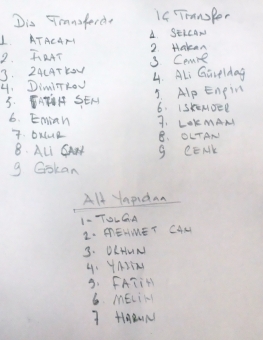 Dış Transferde
1. ATACAN
2. FIRAT
3. ZALATKOV
4. DimitROV
5 FATİH ŞEN
6. Emirhan
7. ONUR
8. ALİ CAN
9 Gökan
İÇ Transfer
1. SERCAN
2. Hakan
3. Cemil
4. Ali Güneldağ
5. Alp Engin
6. İSKENDER
7. LOKMAN
8. OLTAN
9 CENK
Alt Yapıdan
1- TOLGA
2- MEHMET CAN
3- ORHUN
4. YASİN
5. FATİH
6 MELİH
7 HARUN